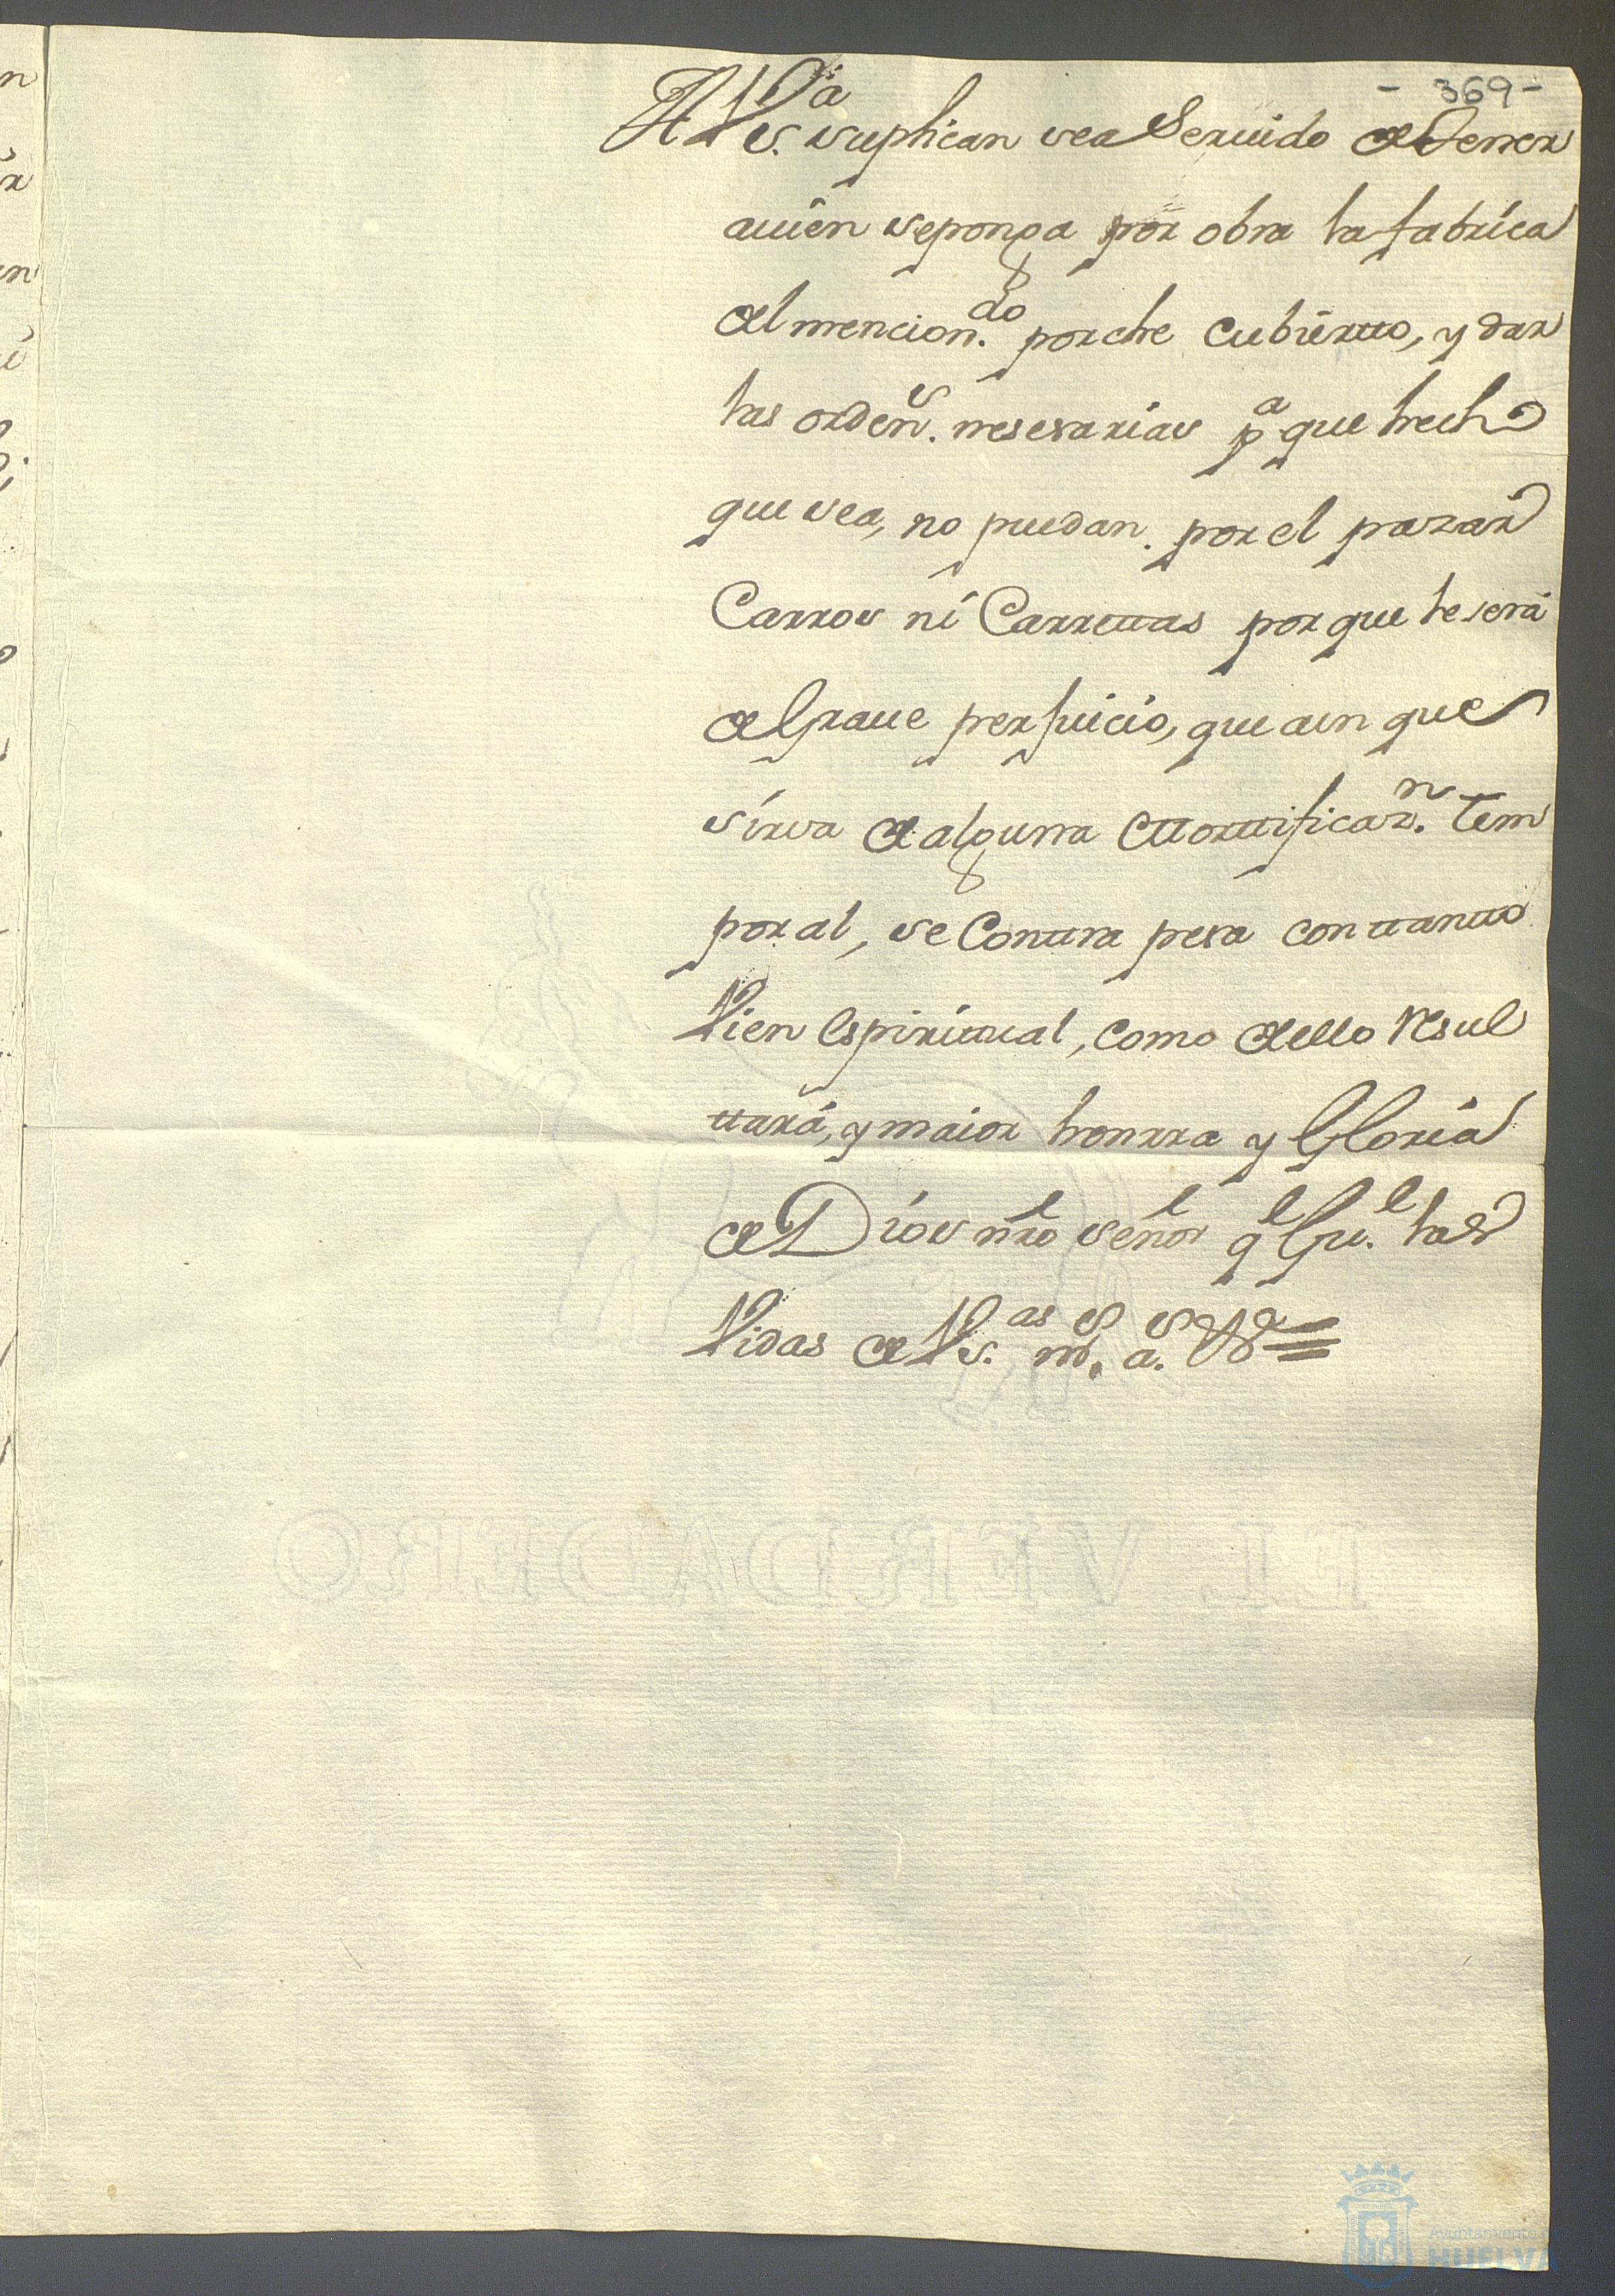 - 369 -
A V.S.ª suplican sea Seruido de tener
auien se ponga por obra la fabrica
del mencion.do porche cubiertto, y dar
las orden.s nesesarias p.a que hecho
que sea, no puedan por el pazar
Carros ni Carrettas porque le será
de Graue perjuicio, que aun que
sirva de alguna Morttificaz.n tem
poral, se Conttra pesa con ttantto
Vien Espirittual, como de ello Resul
ttará, y maior honrra y Gloria
de Dios nro señor q Gu.e las
Vidas de V.S.as m.s a.s
EL VERDADERO
Ayuntamiento de
HUELVA